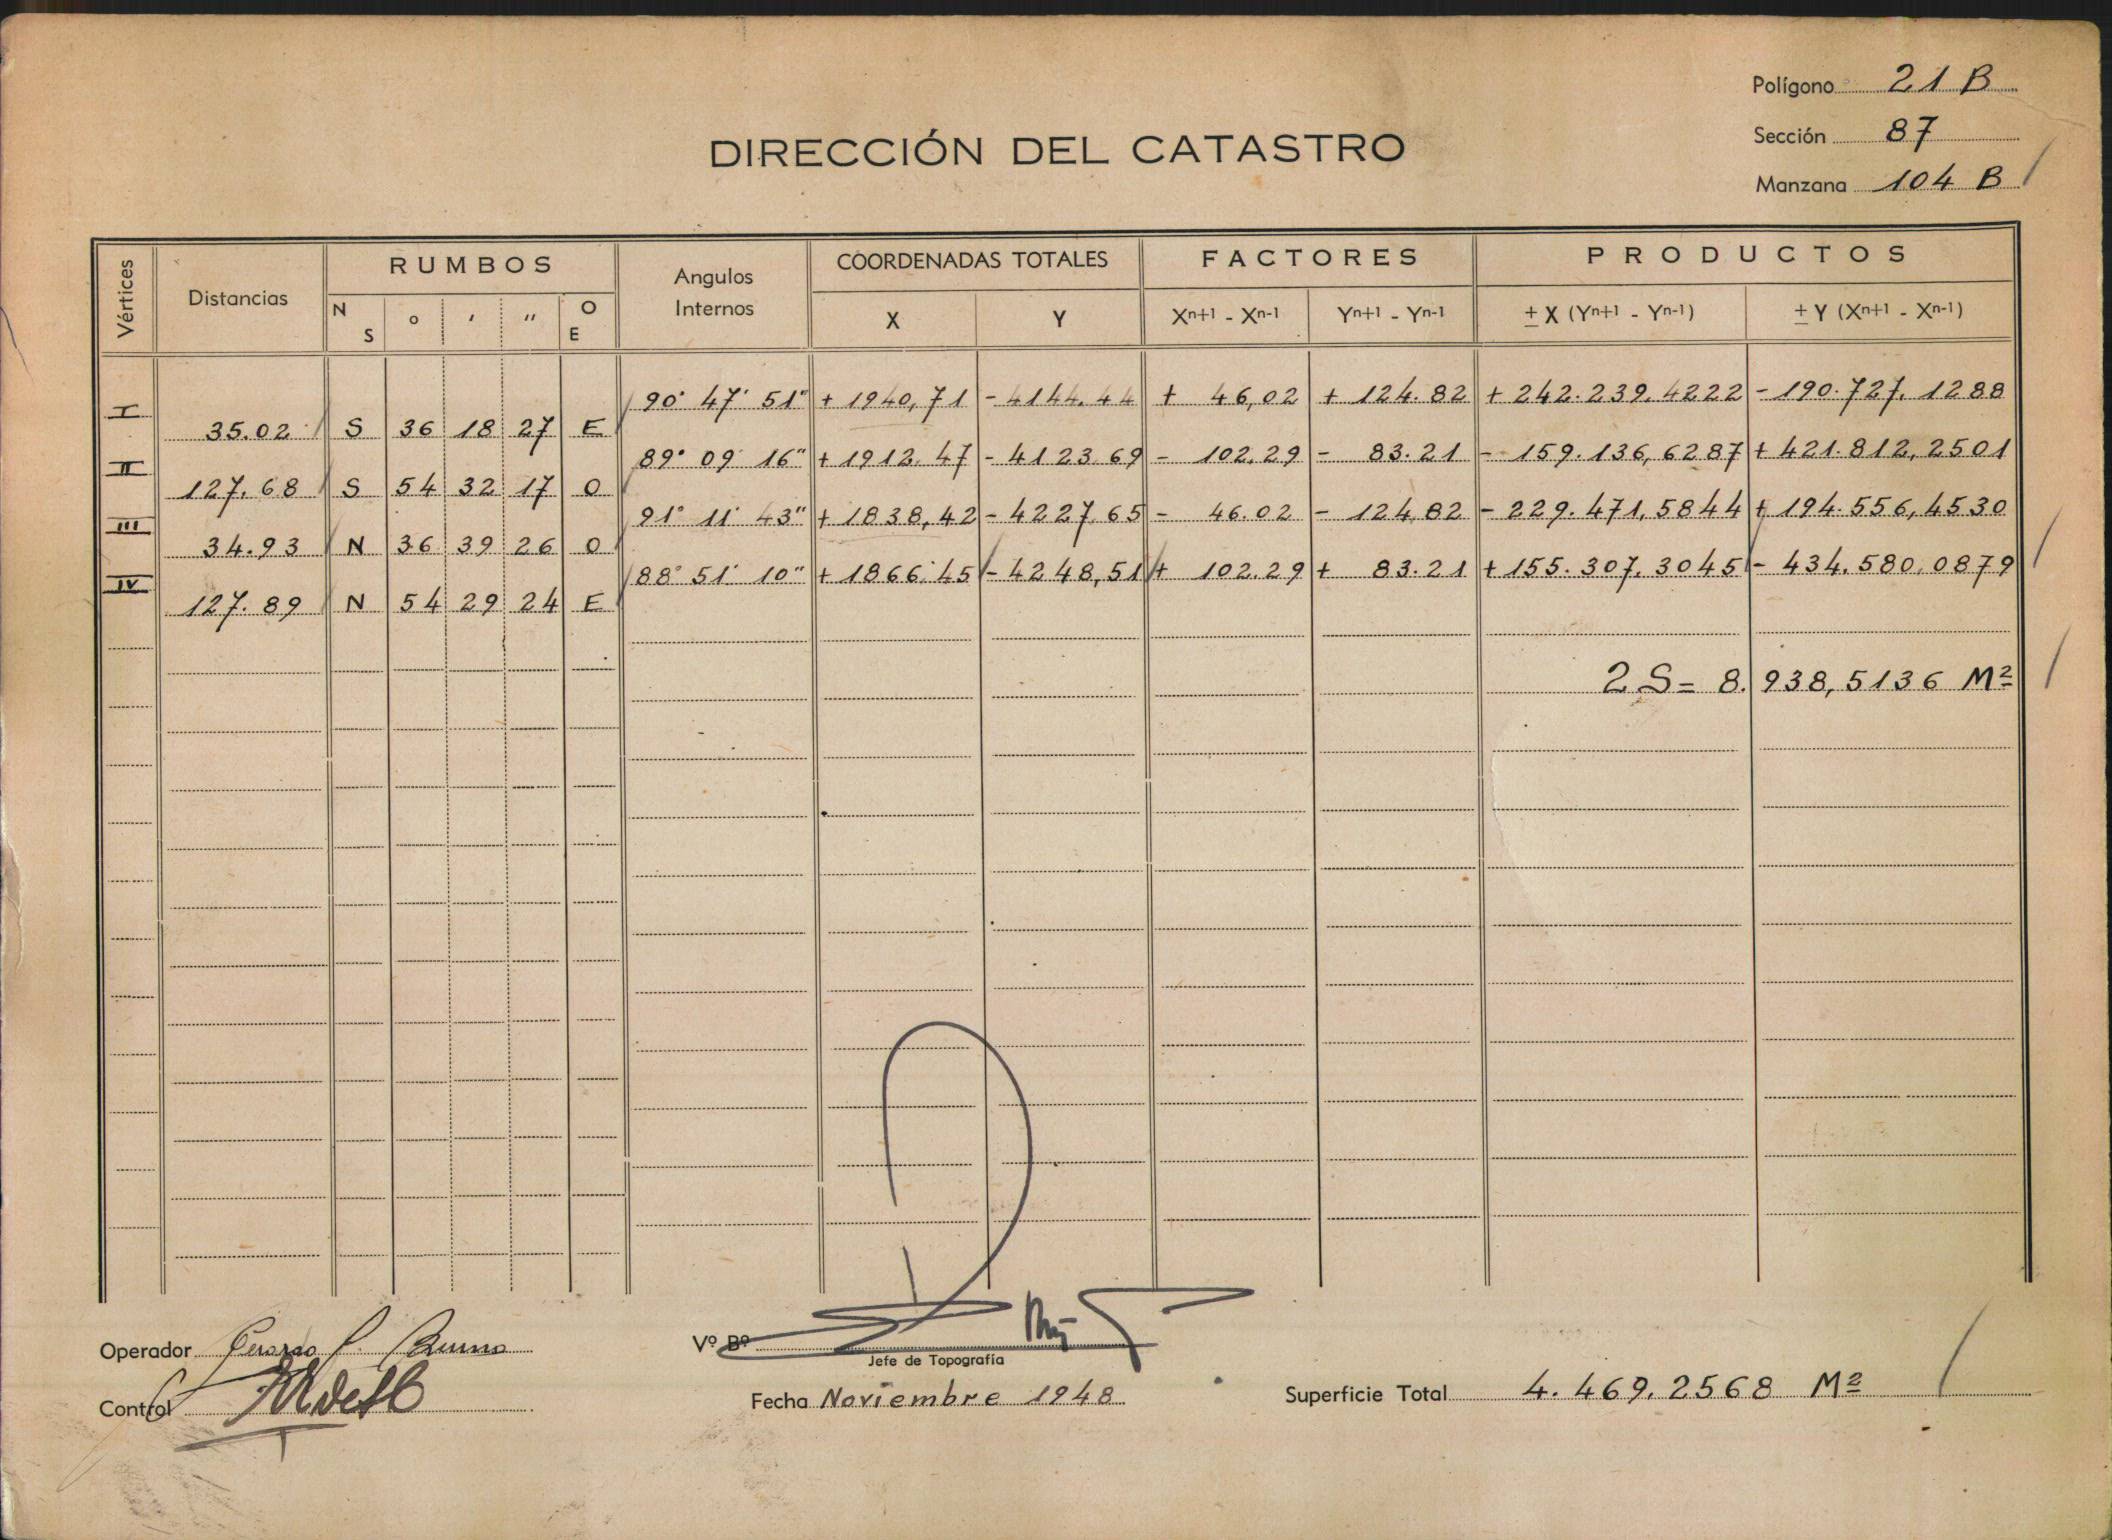 Polígono 21 B
Sección 87
Manzana 104 B
DIRECCIÓN DEL CATASTRO
Vértices Distancias RUMBOS Angulos Internos COORDENADAS TOTALES FACTORES PRODUCTOS
N S o ′ ″ O E X Y Xn+1 - Xn-1 Yn+1 - Yn-1 ± X (Yn+1 - Yn-1) ± Y (Xn+1 - Xn-1)
I 90° 47' 51" + 1940,71 - 4144.44 + 46,02 + 124.82 + 242.239,4222 - 190.727,1288
35.02 S 36 18 27 E
II 89° 09' 16" + 1912.47 - 4123.69 - 102.29 - 83.21 - 159.136,6287 + 421.812,2501
127.68 S 54 32 17 O
III 91° 11' 43" + 1838,42 - 4227.65 - 46.02 - 124.82 - 229.471,5844 + 194.556,4530
34.93 N 36 39 26 O
IV 88° 51' 10" + 1866.45 - 4248,51 + 102.29 + 83.21 + 155.307,3045 - 434.580,0879
127.89 N 54 29 24 E
2 S = 8.938,5136 M²
Operador
Vº Bº
Jefe de Topografía
Control
Fecha Noviembre 1948
Superficie Total 4.469,2568 M²